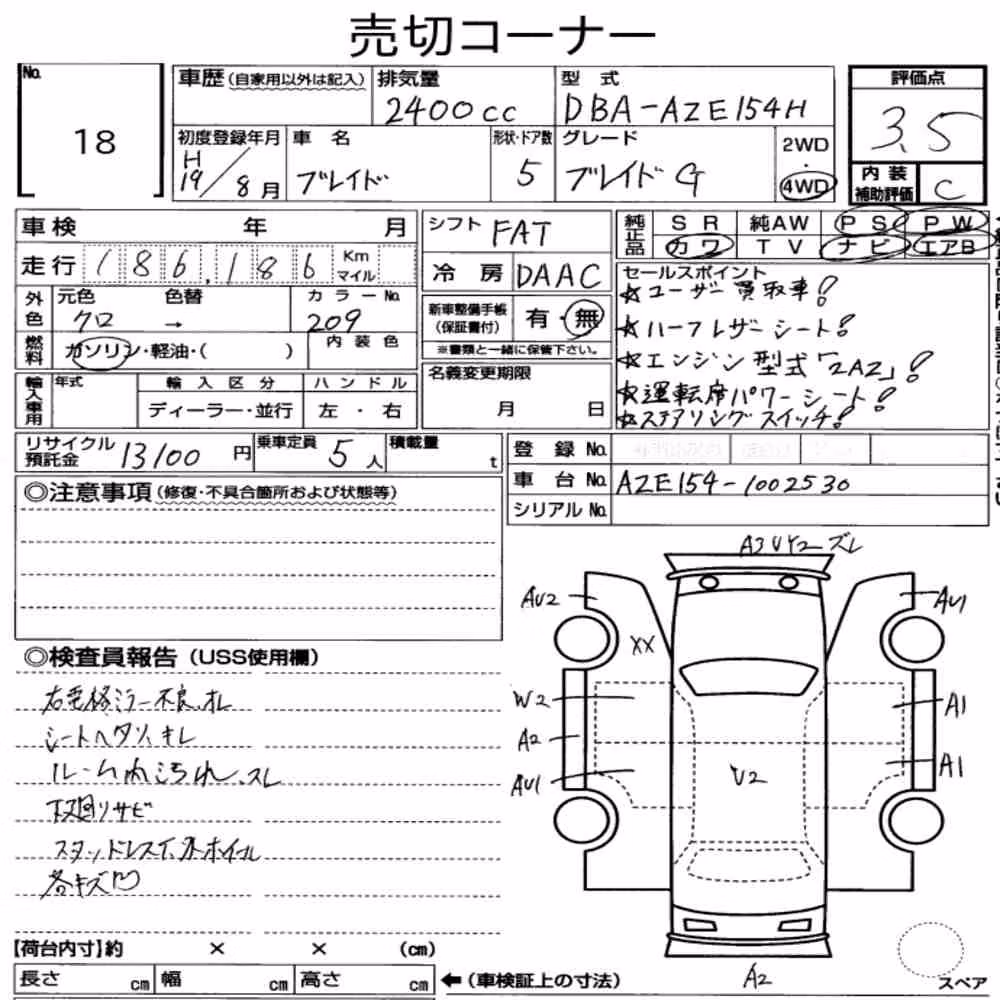 売切コーナー
No.
18
車歴(自家用以外は記入)
排気量
2400cc
型 式
DBA-AZE154H
評価点
3.5
初度登録年月
H
19/8月
車 名
ブレイド
形状・ドア数
5
グレード
ブレイド G
2WD
・
4WD
内 装
補助評価
C
車検 年 月
シフト FAT
純正品
SR 純AW PS PW
カワ TV ナビ エアB
走行 186,186 Km マイル
冷 房 DAAC
セールスポイント
☆ユーザー買取車!
☆ハーフレザーシート!
☆エンジン型式「2AZ」!
☆運転席パワーシート!
☆ステアリングスイッチ!
外色
元色 色替
クロ →
カラーNo.
209
新車整備手帳
(保証書付)
有・無
※書類と一緒に保管下さい。
燃料
ガソリン・軽油・( )
内装色
輸入車用
年式
輸入区分
ハンドル
ディーラー・並行
左・右
名義変更期限
月 日
リサイクル
預託金
13100円
乗車定員
5人
積載量
t
登 録 No.
車 台 No. AZE154-1002530
シリアル No.
◎注意事項(修復・不具合箇所および状態等)
◎検査員報告(USS使用欄)
右電格ミラー不良、オレ
シートヘタリ、キレ
ルーム内汚れ、スレ
下廻りサビ
スタッドレスT、
各キズ凹
A3 U Y2 ズレ
AU2
AU1
XX
W2
A1
A2
AU1
A1
U2
A2
【荷台内寸】約 × × (cm)
長さ cm 幅 cm 高さ cm
←(車検証上の寸法)
スペア